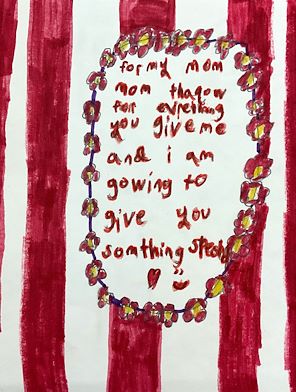 for my mom
mom thaqow
for evrething
you give me
and i am
gowing to
give you
somthing speshl